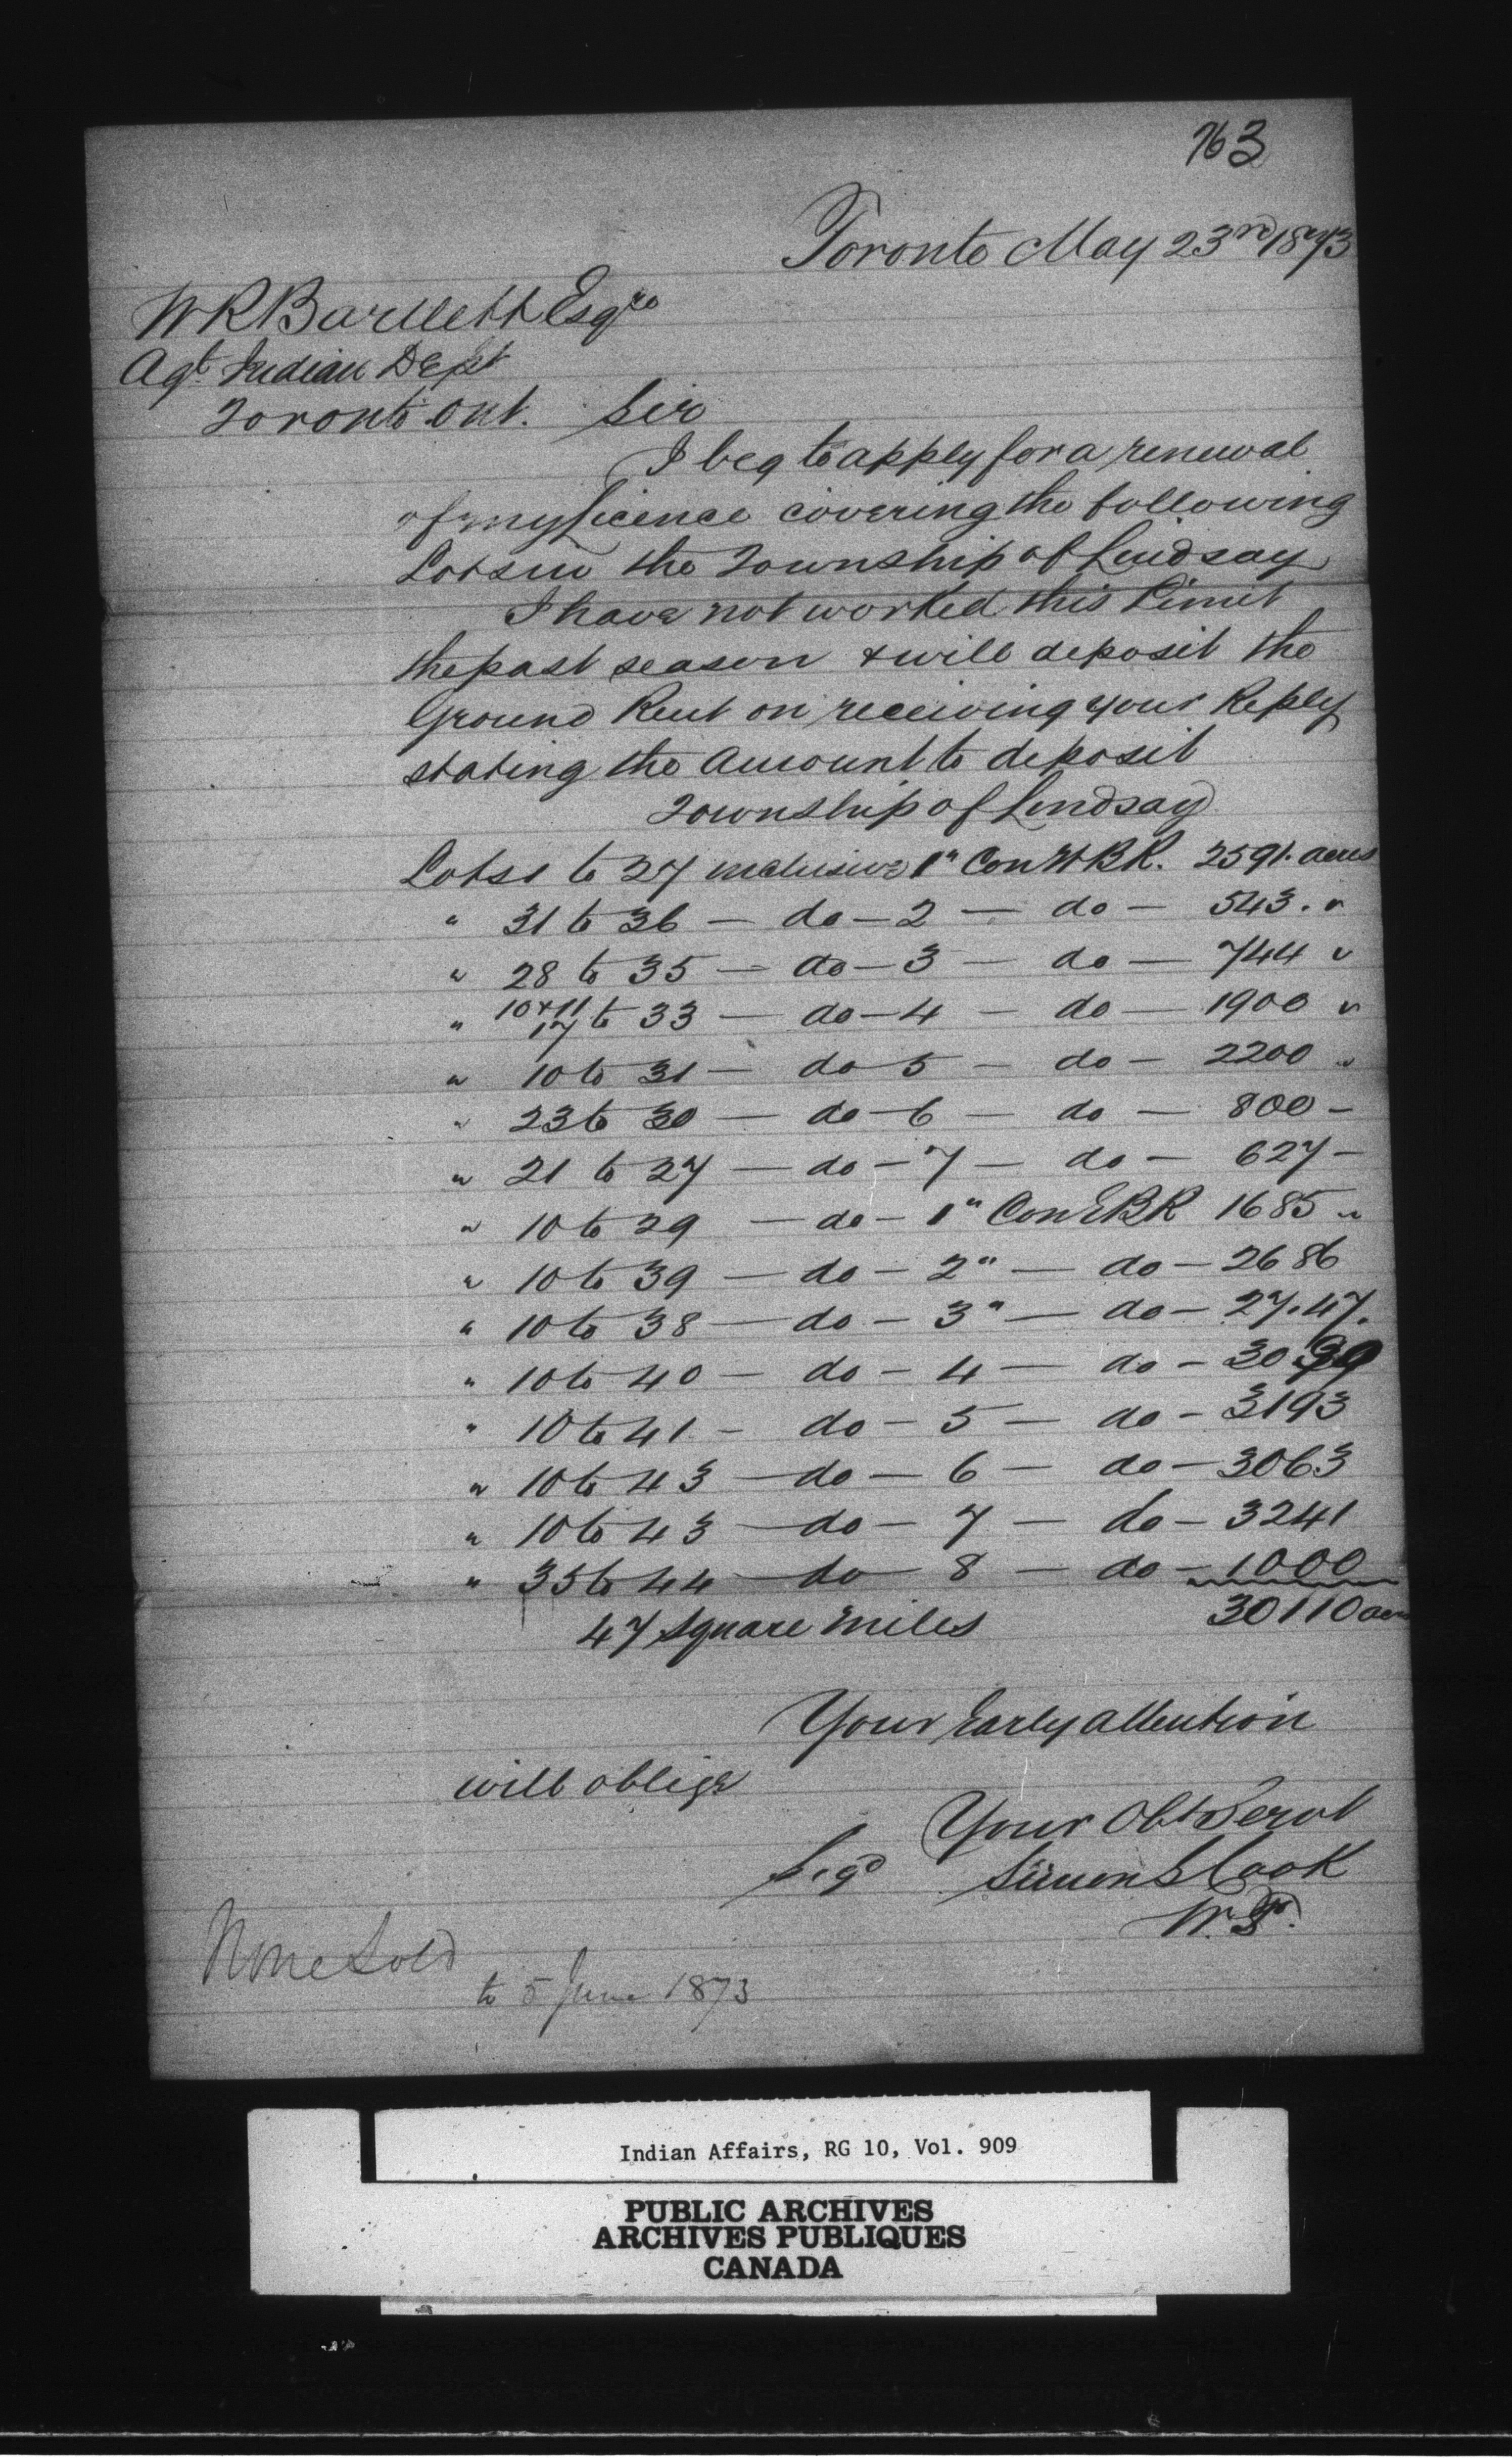 763
Toronto May 23rd 1873
W R Bartlett Esqre
Agt Indian Dept
Toronto Ont. Sir
I beg to apply for a renewal
of my Licence covering the following
Lots in the Township of Lindsay
I have not worked this Limit
the past season & will deposit the
Ground Rent on receiving your Reply
stating the Amount to deposit
Township of Lindsay
Lots 1 to 27 inclusive 1" Con WBR. 2591. acres
" 31 to 36 — do — 2 — do — 543. "
" 28 to 35 — do — 3 — do — 744 "
" 10 & 11
17 to 33 — do — 4 — do — 1900 "
" 10 to 31 — do 5 — do — 2200 "
" 23 to 30 — do — 6 — do — 800 —
" 21 to 27 — do — 7 — do — 627 —
" 10 to 29 — do — 1" Con EBR 1685 "
" 10 to 39 — do — 2" — do — 2686
" 10 to 38 — do — 3" — do — 27.47.
" 10 to 40 — do — 4 — do — 3090
" 10 to 41 — do — 5 — do — 3193
" 10 to 43 — do — 6 — do — 3063
" 10 to 43 — do — 7 — do — 3241
" 35 to 44 — do 8 — do — 1000
47 Square Miles 30110 acr
Your Early attention
will oblige
Your Obt Servt
Sigd Simon S Cook
None Sold
to 5 June 1873
Indian Affairs, RG 10, Vol. 909
PUBLIC ARCHIVES
ARCHIVES PUBLIQUES
CANADA